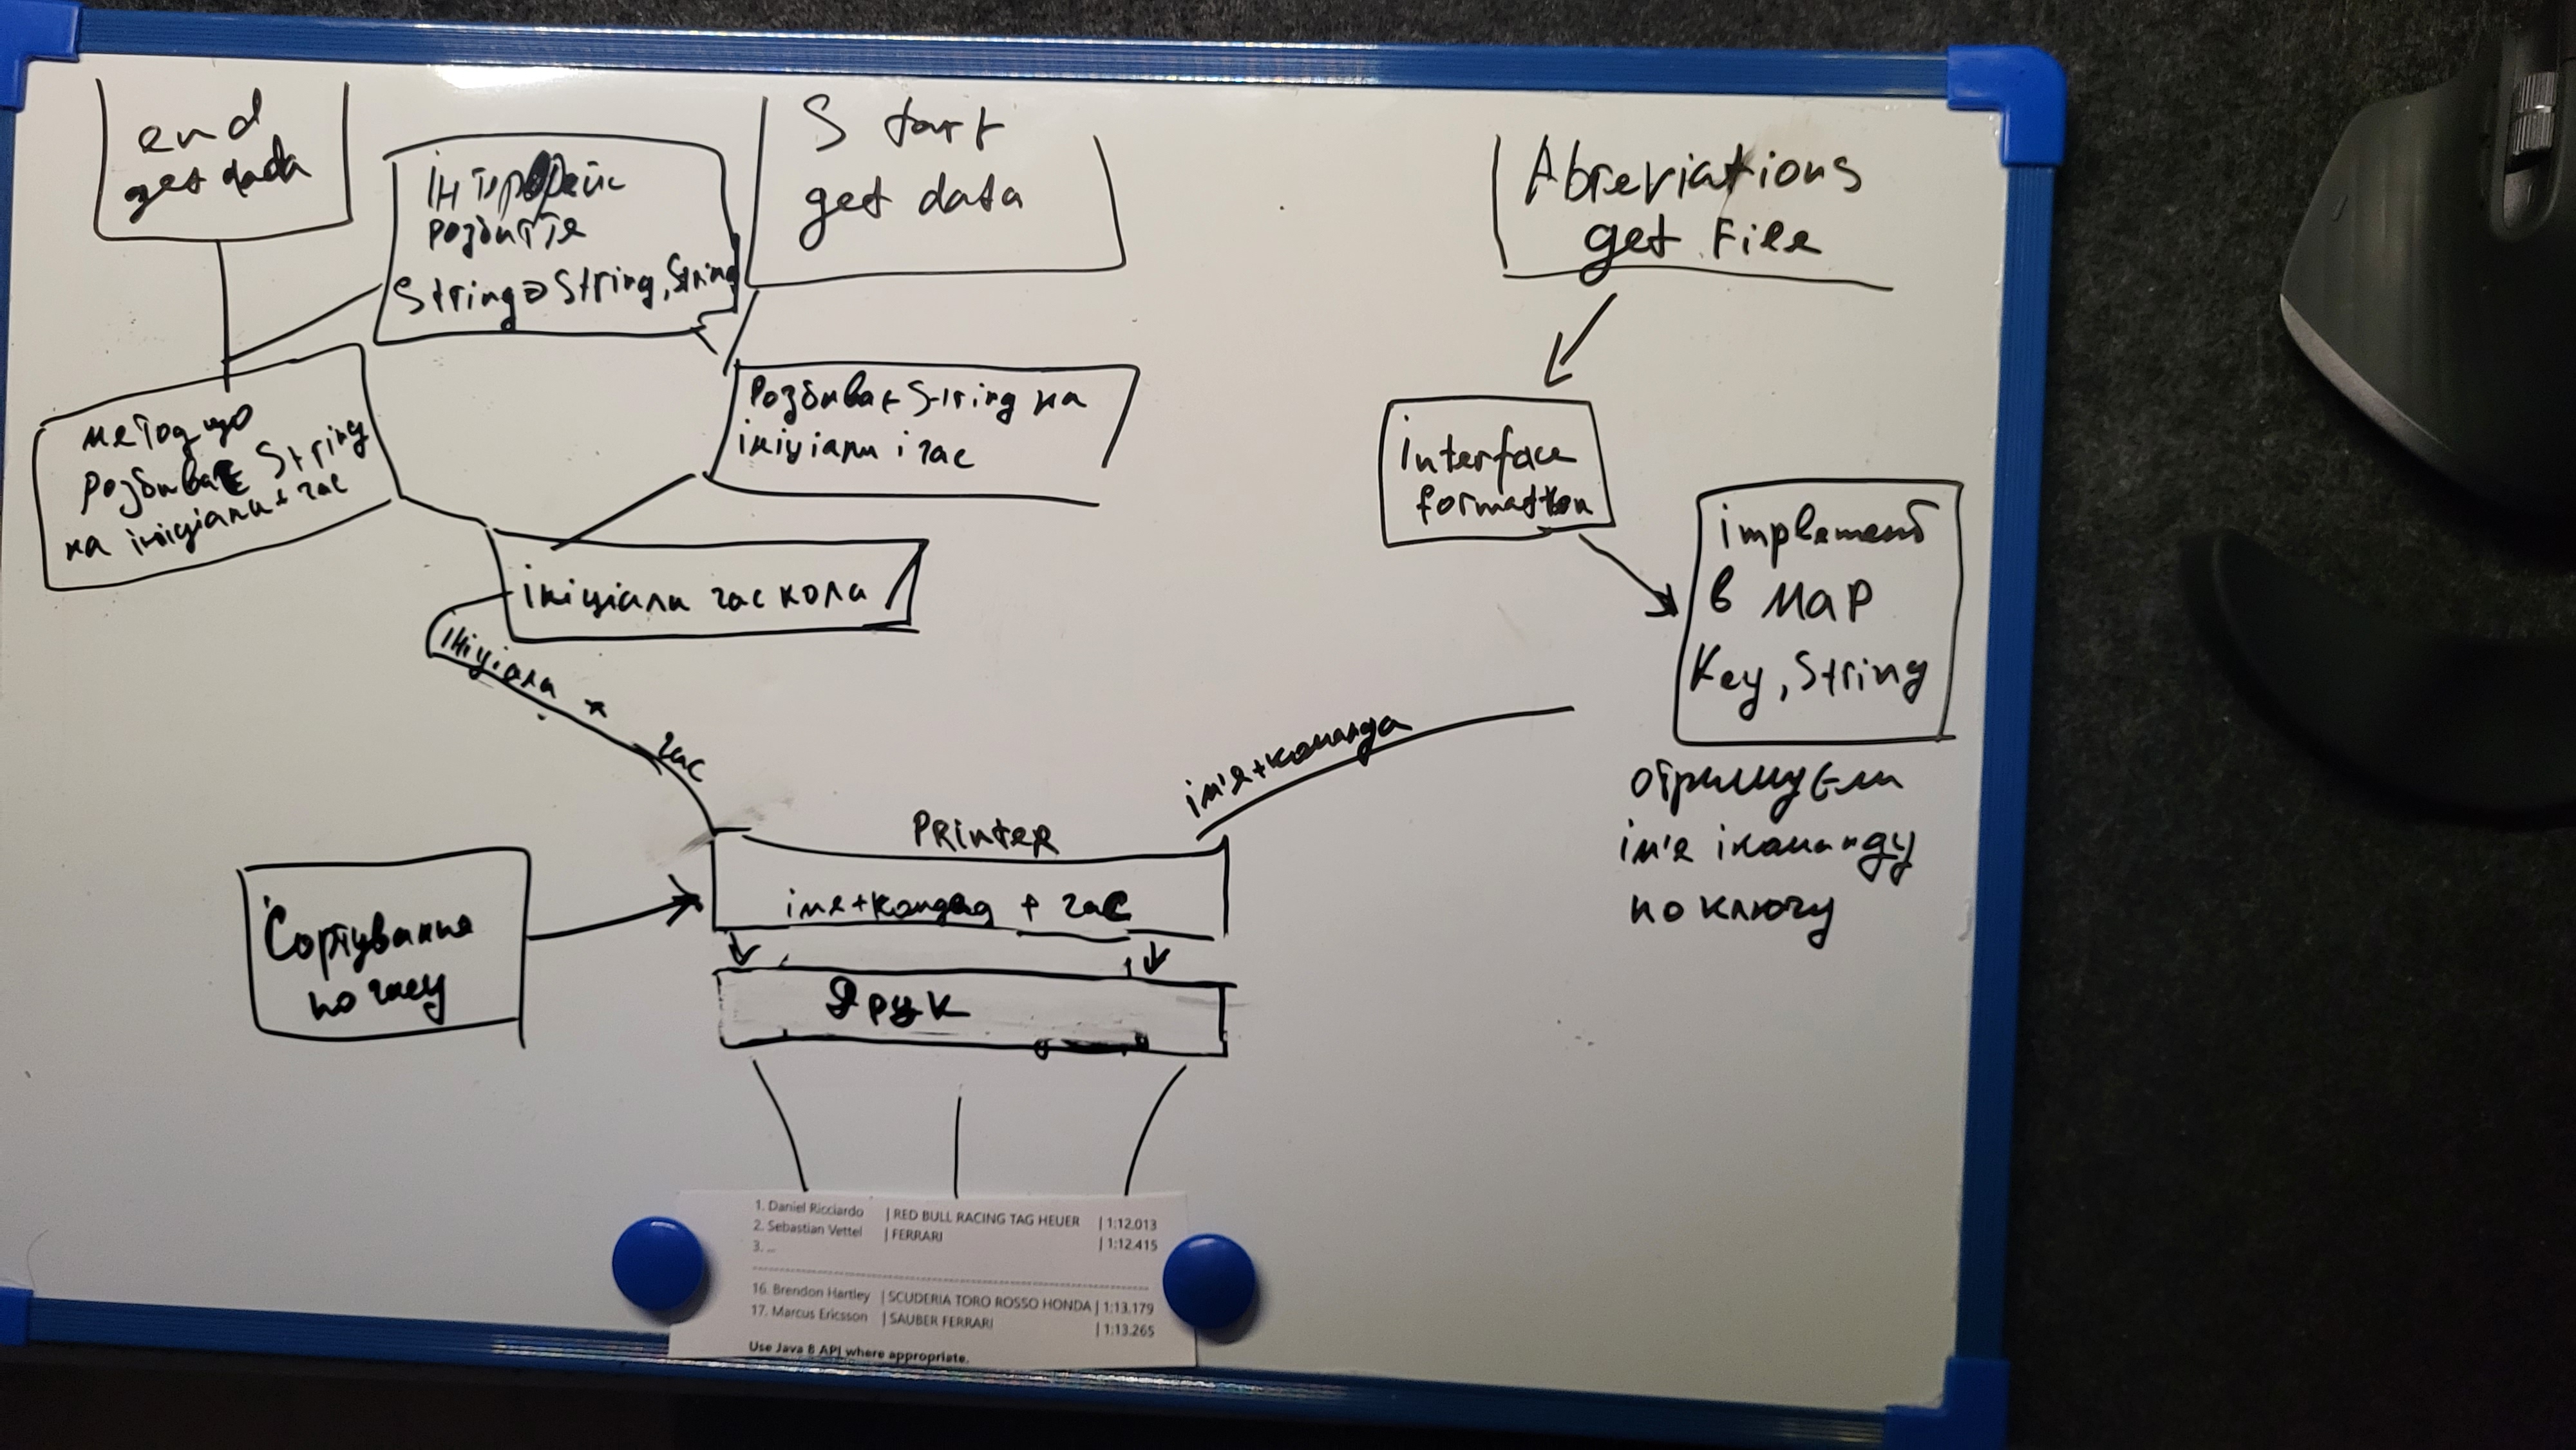 end
get data
Інтерфейс
розбиття
String → String, String
Start
get data
Abreviations
get File
метод що
розбиває String
на ініціали + час
Розбиває String на
ініціали і час
interface
implement
в Map
Key, String
ініціали час кола
ініціали + час
ім'я+команда
отримуєм
ім'я і команду
по ключу
PRinteR
імя+команда + час
Сортування
по часу
Друк
1. Daniel Ricciardo | RED BULL RACING TAG HEUER | 1:12.013
2. Sebastian Vettel | FERRARI | 1:12.415
3. ...
------------------------------------------------------------------------
16. Brendon Hartley | SCUDERIA TORO ROSSO HONDA | 1:13.179
17. Marcus Ericsson | SAUBER FERRARI | 1:13.265
Use Java 8 API where appropriate.